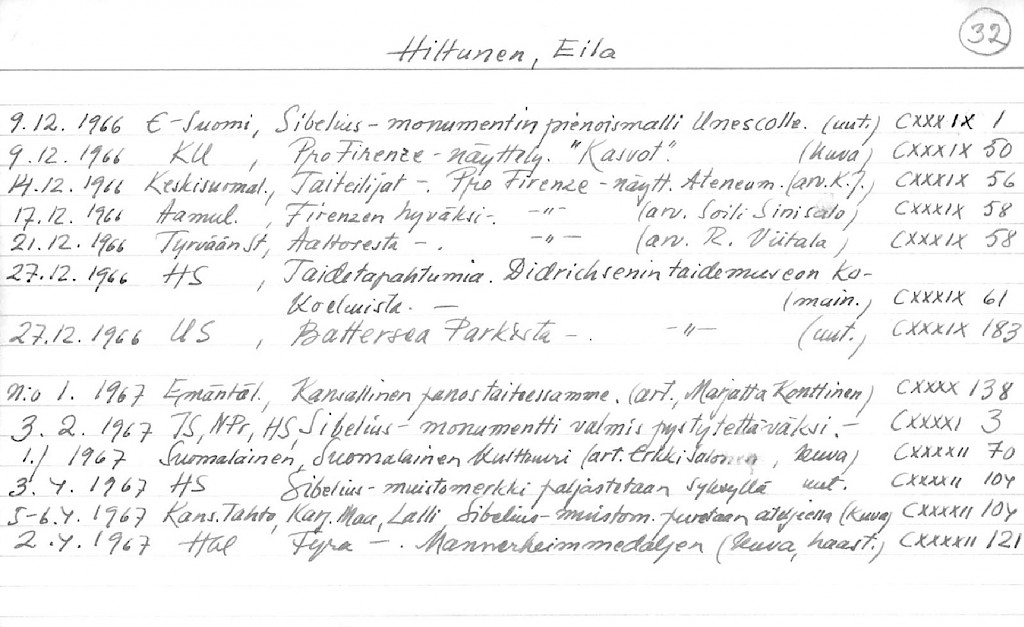 32
Hiltunen, Eila
9.12. 1966 E-Suomi, Sibelius-monumentin pienoismalli Unescolle. (uut.) CXXXIX 1
9.12. 1966 KU, Pro Firenze-näyttely. "Kasvot". (kuva) CXXXIX 50
14.12. 1966 Keskisuomal., Taiteilijat -. Pro Firenze-näytt. Ateneum. (arv. K.J.) CXXXIX 56
17.12. 1966 Aamul., Firenzen hyväksi-. -"- (arv. Soili Sinisalo) CXXXIX 58
21.12. 1966 Tyrvään St, Aaltoresta -. -"- (arv. R. Viitala) CXXXIX 58
27.12. 1966 HS, Taidetapahtumia. Didrichsenin taidemuseon ko-
koelmista. - (main.) CXXXIX 61
27.12. 1966 US, Battersea Parkista -. -"- (uut.) CXXXIX 183
N:o 1. 1967 Emäntäl., Kansallinen panos taiteessamme. (art., Marjatta Konttinen) CXXXX 138
3. 2. 1967 TS, NPr, HS, Sibelius-monumentti valmis pystytettäväksi.- CXXXXI 3
1./ 1967 Suomalainen, Suomalainen Kulttuuri (art. Erkki Salonen, kuva) CXXXXII 70
3.4. 1967 HS Sibelius-muistomerkki paljastetaan syksyllä uut. CXXXXII 104
5-6.4. 1967 Kans.Tahto, Karj.Maa, Lalli, Sibelius-muistom. puretaan ateljeessa (kuva) CXXXXII 104
2.4. 1967 Hbl Fyra -. Mannerheimmedaljen (kuva, haast.) CXXXXII 121